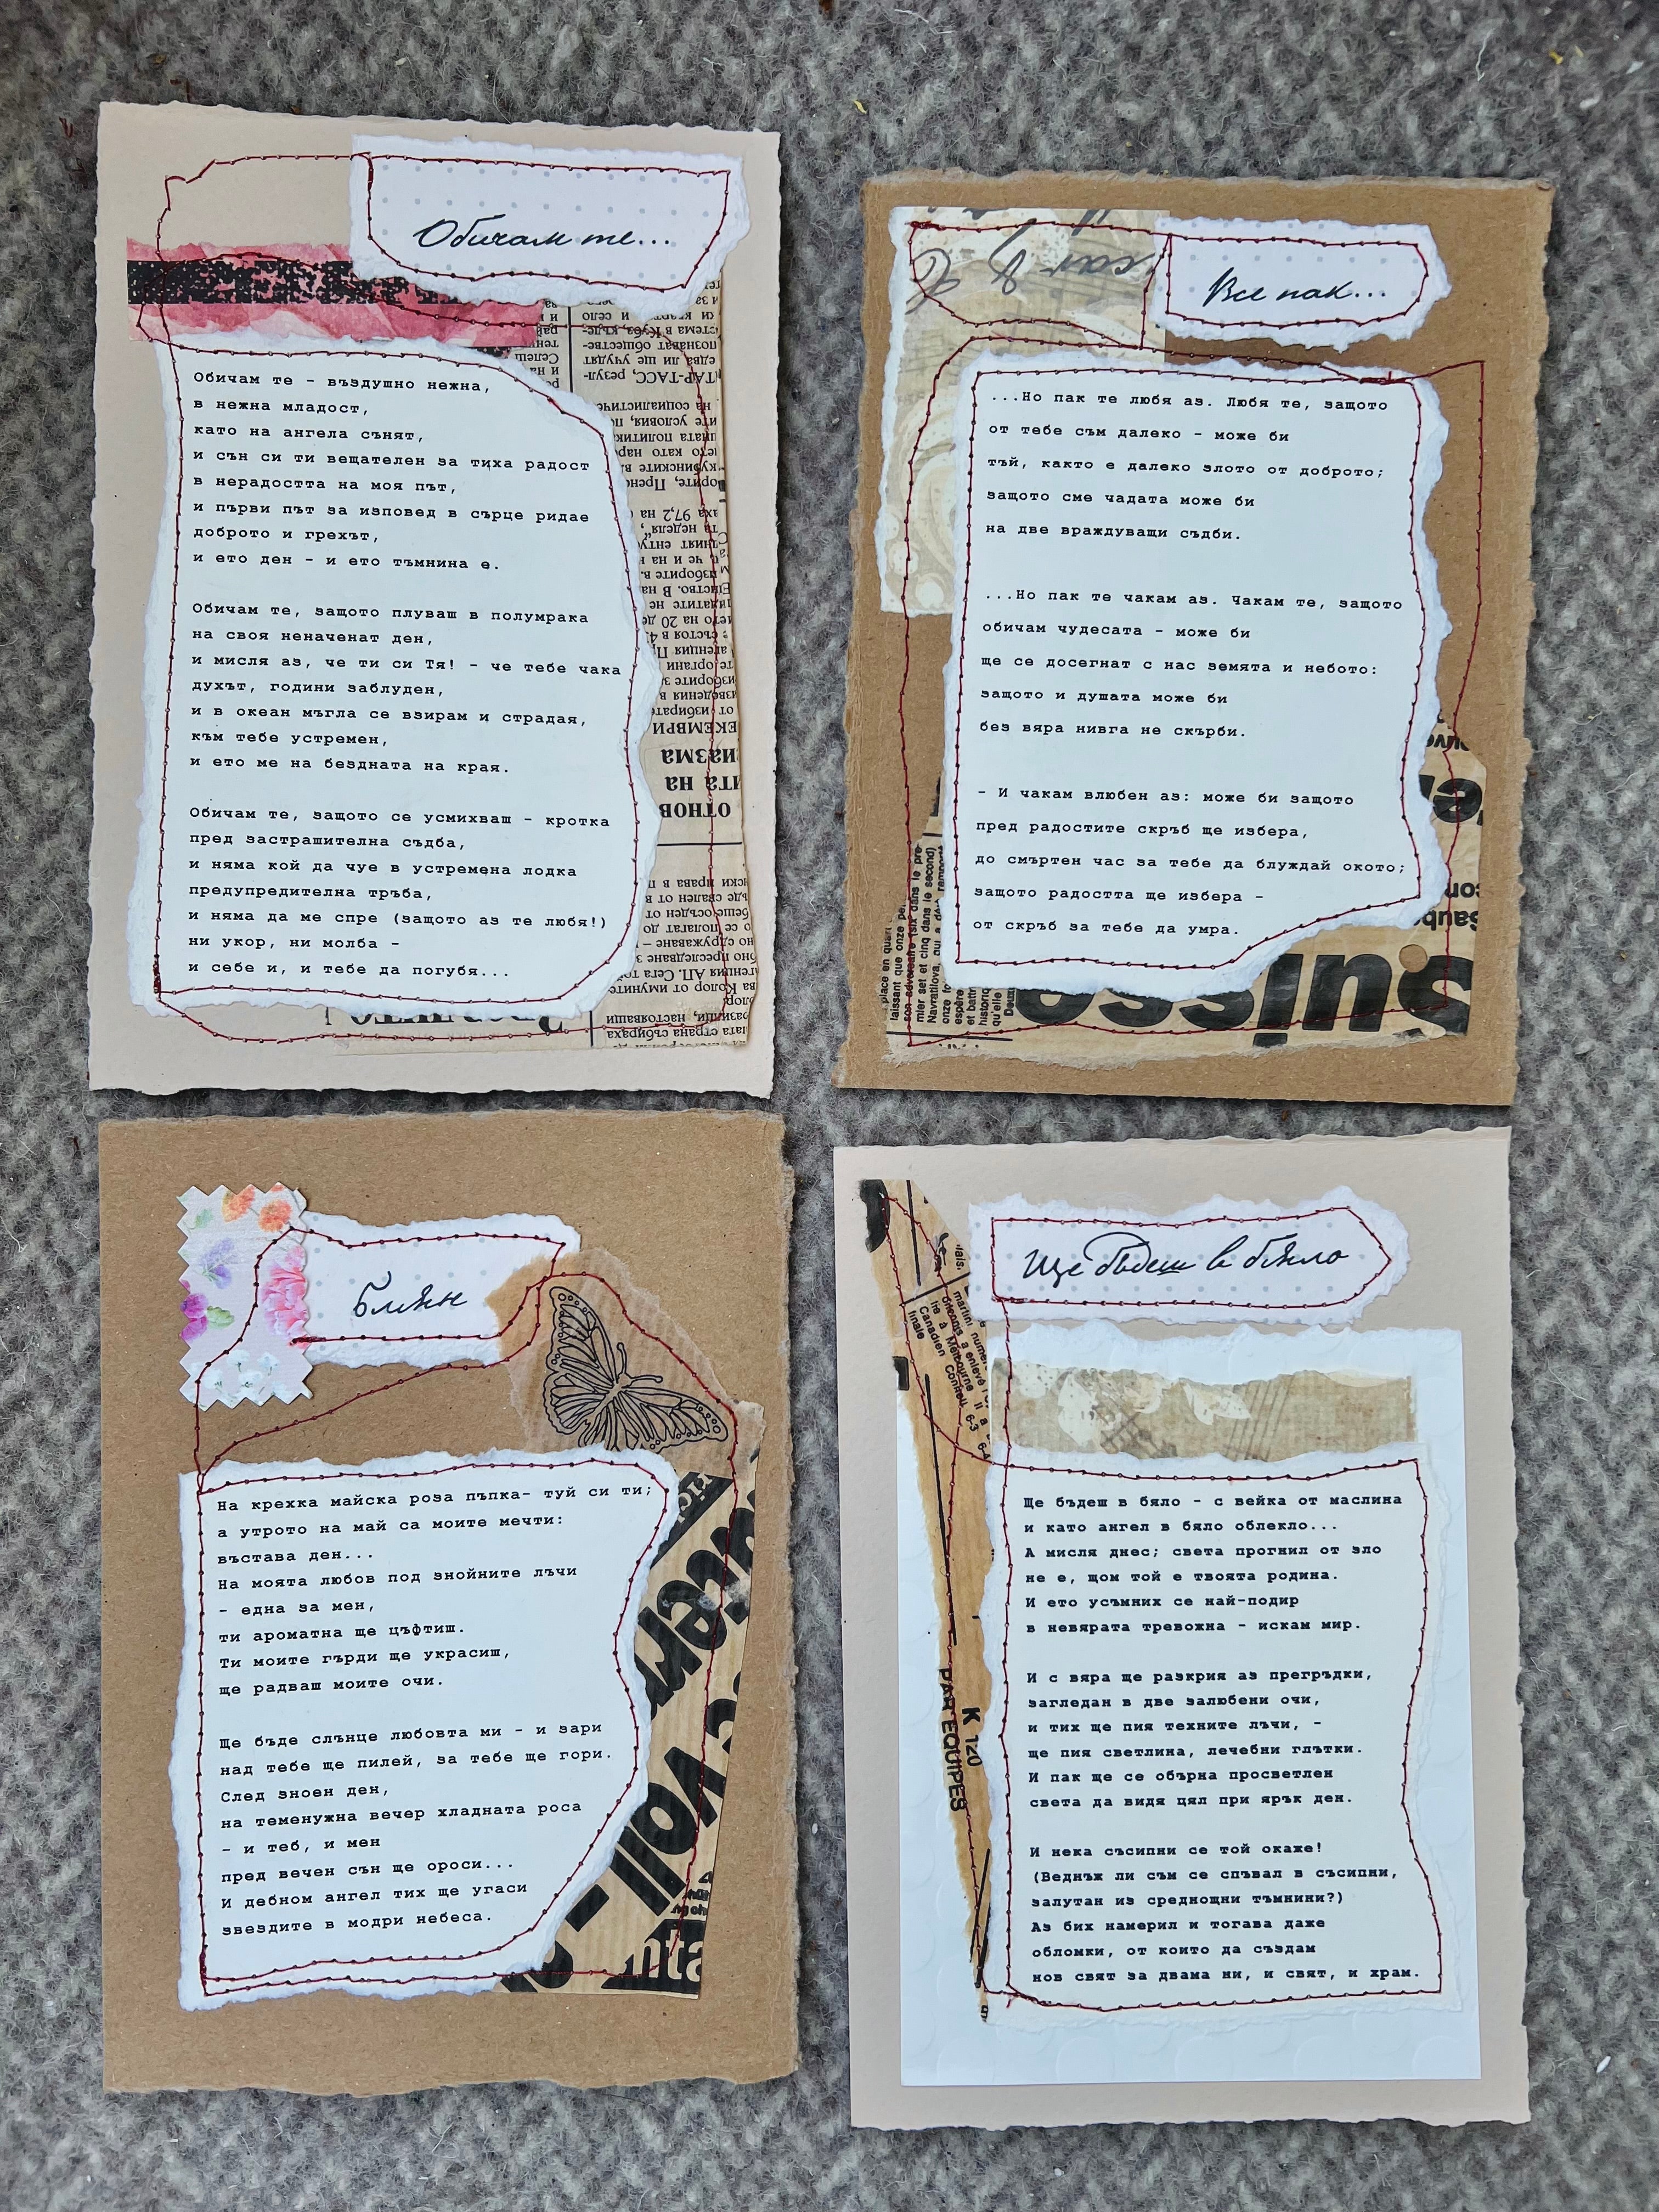 Обичам те...
Обичам те - въздушно нежна,
в нежна младост,
като на ангела сънят,
и сън си ти вещателен за тиха радост
в нерадостта на моя път,
и първи път за изповед в сърце ридае
доброто и грехът,
и ето ден - и ето тъмнина е.
Обичам те, защото плуваш в полумрака
на своя неначенат ден,
и мисля аз, че ти си Тя! - че тебе чака
духът, години заблуден,
и в океан мъгла се взирам и страдая,
към тебе устремен,
и ето ме на бездната на края.
Обичам те, защото се усмихваш - кротка
пред застрашителна съдба,
и няма кой да чуе в устремена лодка
предупредителна тръба,
и няма да ме спре (защото аз те любя!)
ни укор, ни молба -
и себе и, и тебе да погубя...
Все пак...
...Но пак те любя аз. Любя те, защото
от тебе съм далеко - може би
тъй, както е далеко злото от доброто;
защото сме чадата може би
на две враждуващи съдби.
...Но пак те чакам аз. Чакам те, защото
обичам чудесата - може би
ще се досегнат с нас земята и небото:
защото и душата може би
без вяра нивга не скърби.
- И чакам влюбен аз: може би защото
пред радостите скръб ще избера,
до смъртен час за тебе да блуждай окото;
защото радостта ще избера -
от скръб за тебе да умра.
suisse
Блян
На крехка майска роза пъпка- туй си ти;
а утрото на май са моите мечти:
въстава ден...
На моята любов под знойните лъчи
- една за мен,
ти ароматна ще цъфтиш.
Ти моите гърди ще украсиш,
ще радваш моите очи.
Ще бъде слънце любовта ми - и зари
над тебе ще пилей, за тебе ще гори.
След зноен ден,
на теменужна вечер хладната роса
- и теб, и мен
пред вечен сън ще ороси...
И дебном ангел тих ще угаси
звездите в модри небеса.
Ще бъдеш в бяло
Ще бъдеш в бяло - с вейка от маслина
и като ангел в бяло облекло...
А мисля днес; света прогнил от зло
не е, щом той е твоята родина.
И ето усъмних се най-подир
в невярата тревожна - искам мир.
И с вяра ще разкрия аз прегръдки,
загледан в две залюбени очи,
и тих ще пия техните лъчи, -
ще пия светлина, лечебни глътки.
И пак ще се обърна просветлен
света да видя цял при ярък ден.
И нека съсипни се той окаже!
(Веднъж ли съм се спъвал в съсипни,
залутан из среднощни тъмнини?)
Аз бих намерил и тогава даже
обломки, от които да създам
нов свят за двама ни, и свят, и храм.
K 120
PAR EQUIPES